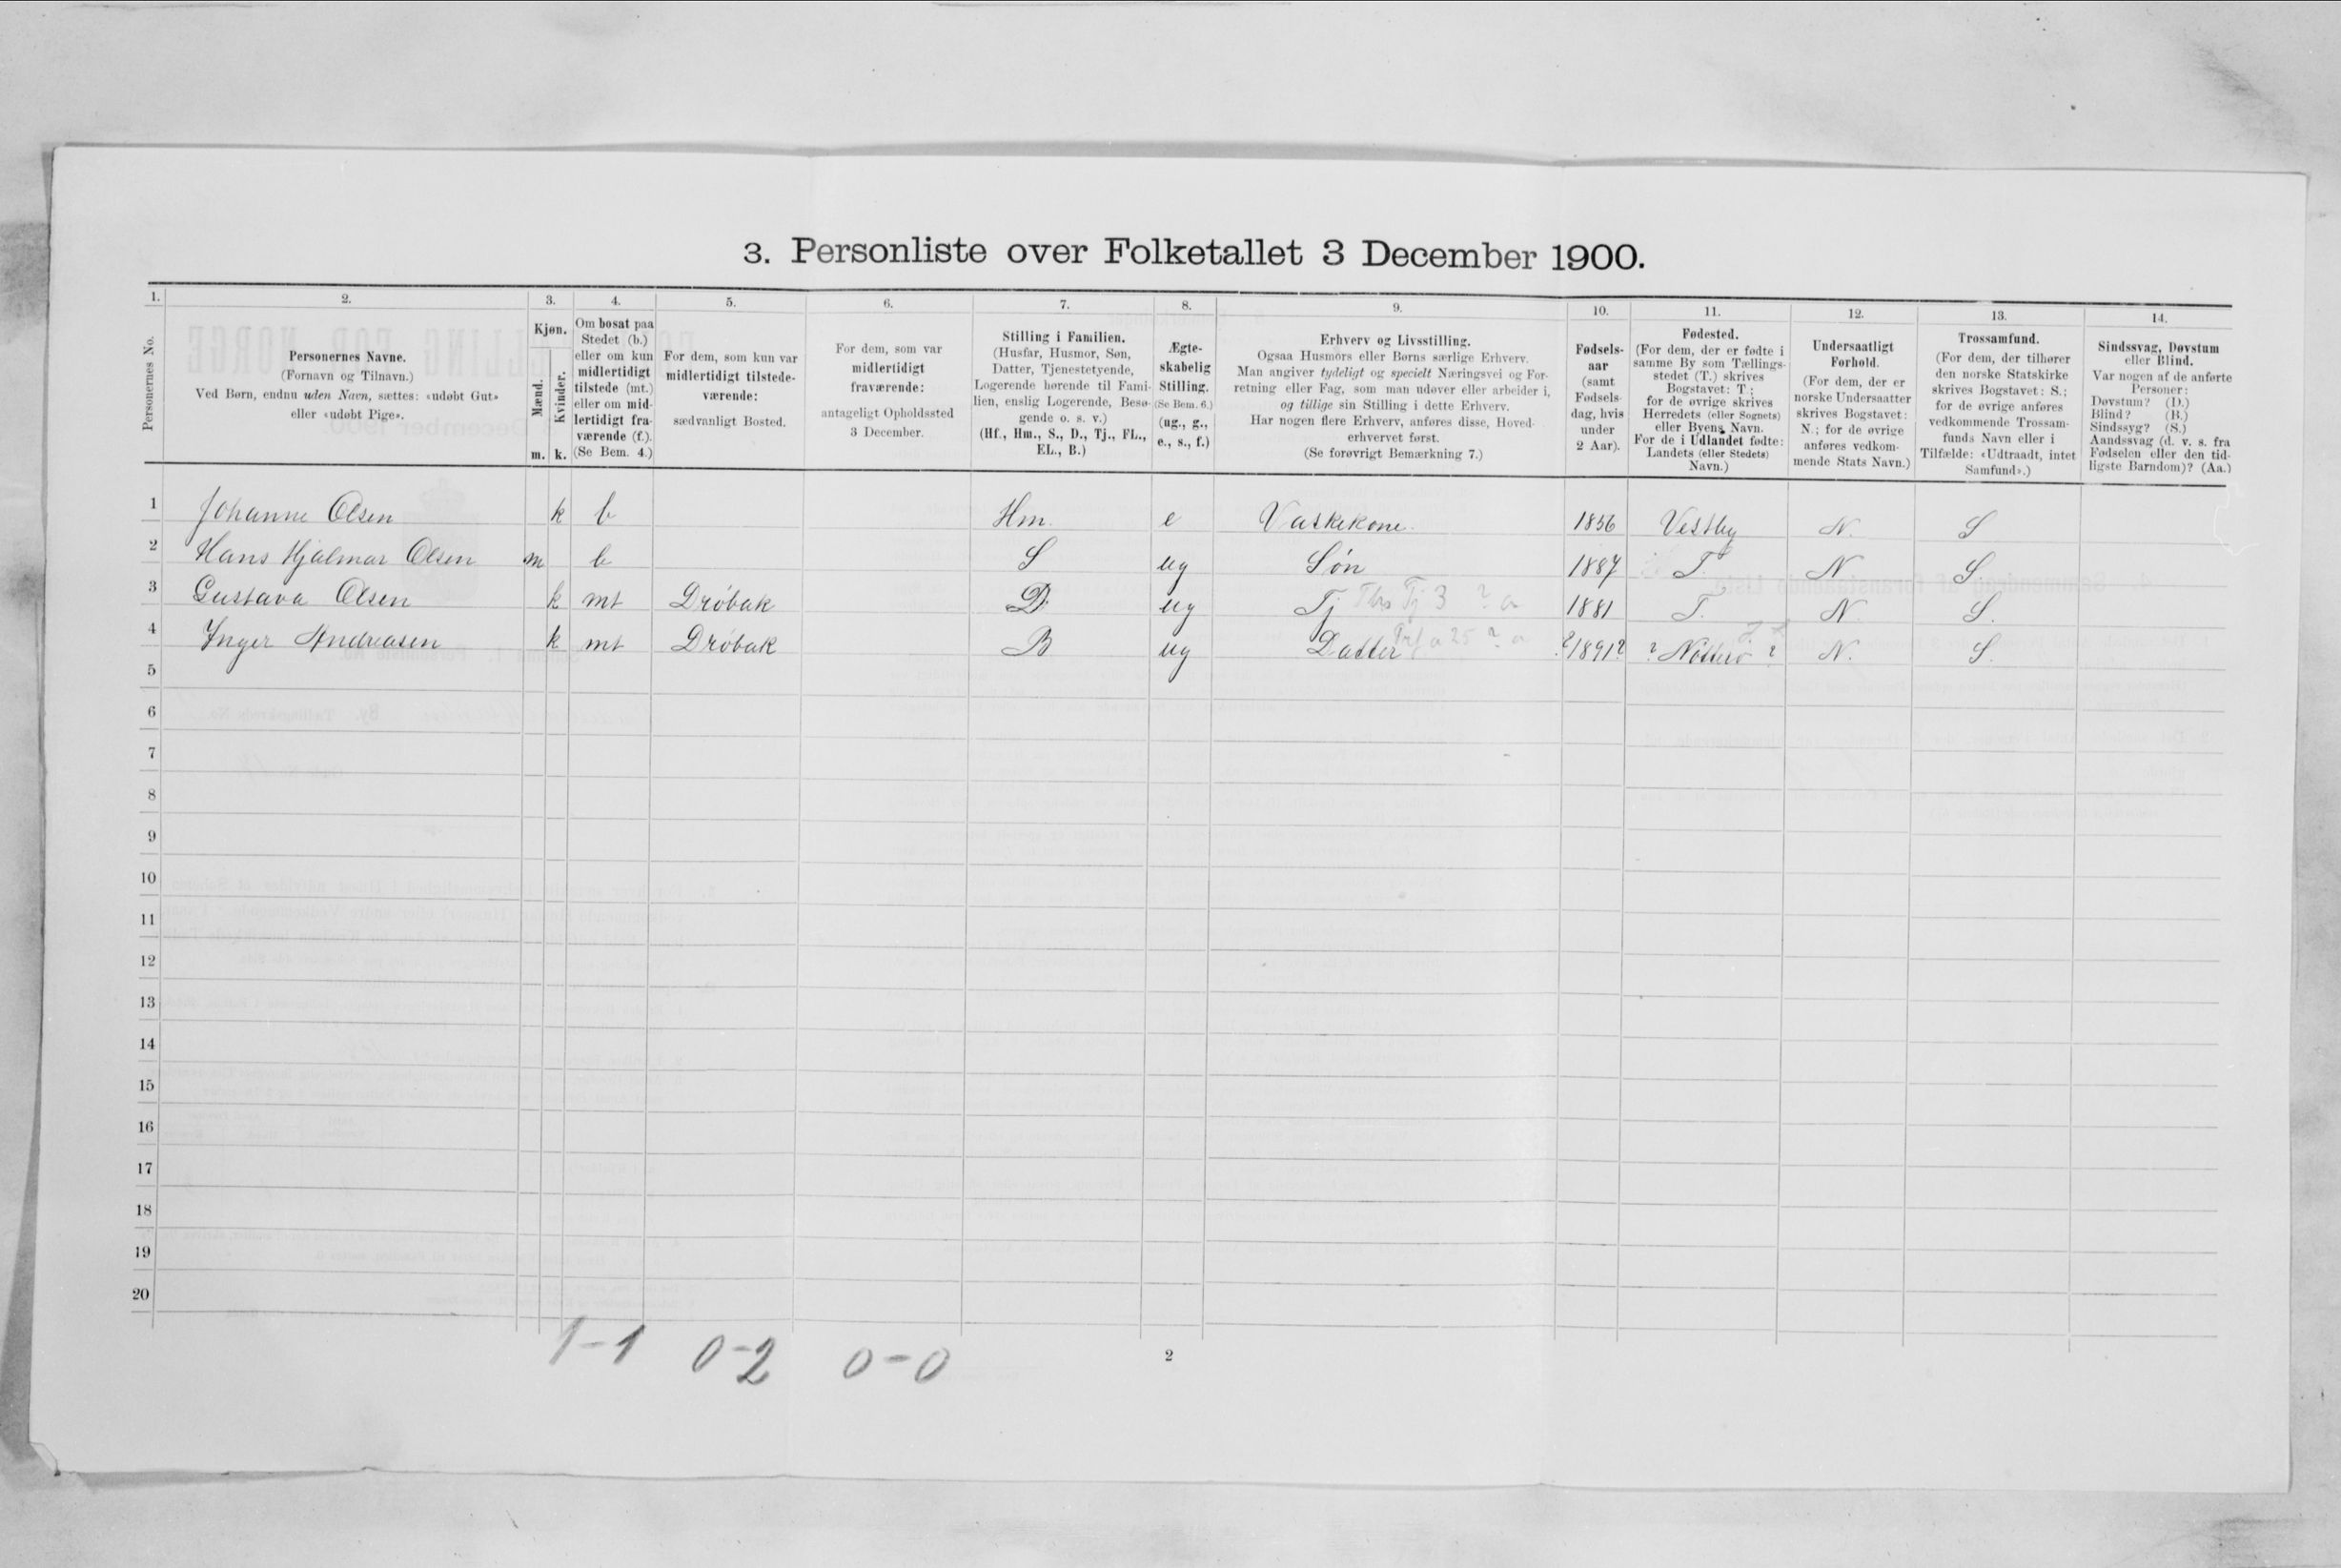 3. Personliste over Folketallet 3 December 1900.
1. 2. 3. 4. 5. 6. 7. 8. 9. 10. 11. 12. 13. 14.
Personernes No.
Personernes Navne.
(Fornavn og Tilnavn.)
Ved Børn, endnu uden Navn, sættes: «udøbt Gut»
eller «udøbt Pige».
Kjøn.
Mænd.
Kvinder.
m. k.
Om bosat paa
Stedet (b.)
eller om kun
midlertidigt
tilstede (mt.)
eller om mid-
lertidigt fra-
værende (f.).
(Se Bem. 4.)
For dem, som kun var
midlertidigt tilstede-
værende:
sædvanligt Bosted.
For dem, som var
midlertidigt
fraværende:
antageligt Opholdssted
3 December.
Stilling i Familien.
(Husfar, Husmor, Søn,
Datter, Tjenestetyende,
Logerende hørende til Fami-
lien, enslig Logerende, Besø-
gende o. s. v.)
(Hf., Hm., S., D., Tj., FL.,
EL., B.)
Ægte-
skabelig
Stilling.
(Se Bem. 6.)
(ug., g.,
e., s., f.)
Erhverv og Livsstilling.
Ogsaa Husmors eller Børns særlige Erhverv.
Man angiver tydeligt og specielt Næringsvei og For-
retning eller Fag, som man udøver eller arbeider i,
og tillige sin Stilling i dette Erhverv.
Har nogen flere Erhverv, anføres disse, Hoved-
erhvervet først.
(Se forøvrigt Bemærkning 7.)
Fødsels-
aar
(samt
Fødsels-
dag, hvis
under
2 Aar).
Fødested.
(For dem, der er fødte i
samme By som Tællings-
stedet (T.) skrives
Bogstavet: T;
for de øvrige skrives
Herredets (eller Sognets)
eller Byens Navn.
For de i Udlandet fødte:
Landets (eller Stedets)
Navn.)
Undersaatligt
Forhold.
(For dem, der er
norske Undersaatter
skrives Bogstavet:
N.; for de øvrige
anføres vedkom-
mende Stats Navn.)
Trossamfund.
(For dem, der tilhører
den norske Statskirke
skrives Bogstavet: S.;
for de øvrige anføres
vedkommende Trossam-
funds Navn eller i
Tilfælde: «Udtraadt, intet
Samfund».)
Sindssvag, Døvstum
eller Blind.
Var nogen af de anførte
Personer:
Døvstum? (D.)
Blind? (B.)
Sindssyg? (S.)
Aandssvag (d. v. s. fra
Fødselen eller den tid-
ligste Barndom)? (Aa.)
1 Johanne Olsen k b Hm. e Vaskekone. 1856 Vestby N. S
2 Hans Hjalmar Olsen m b S ug Søn 1887 T. N S.
3 Gustava Olsen k mt Drøbak D. ug Tj Tj 3 ? 1881 T. N. S.
4 Inger Andreasen k mt Drøbak B ug Datter 25 ? ?1891? ? Nøtterø ? N. S.
5
6
7
8
9
10
11
12
13
14
15
16
17
18
19
20
1-1 0-2 0-0
2